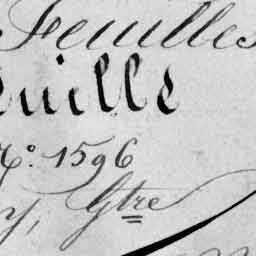 Feuilles
uille
N.º 1596
y, Gtre